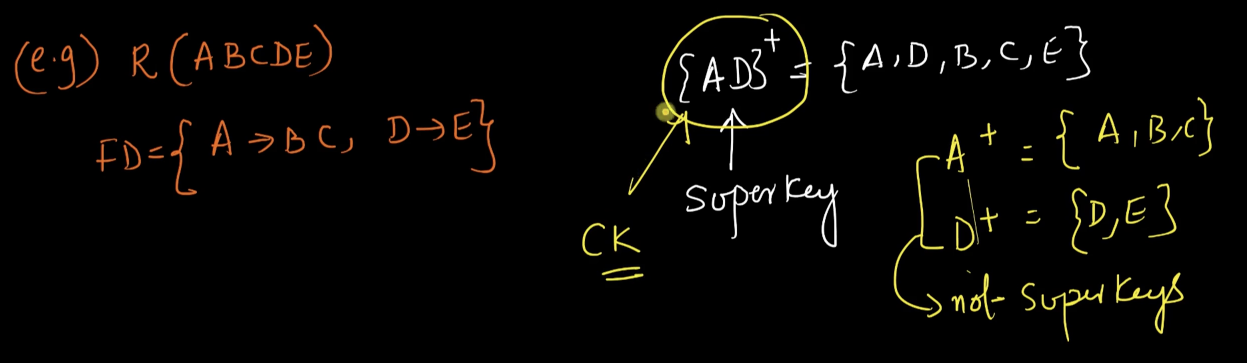 (e.g) R(ABCDE)
FD={A→BC, D→E}
{AD}⁺ = {A,D,B,C,E}
Super key
CK
A⁺ = {A,B,C}
D⁺ = {D,E}
not super keys